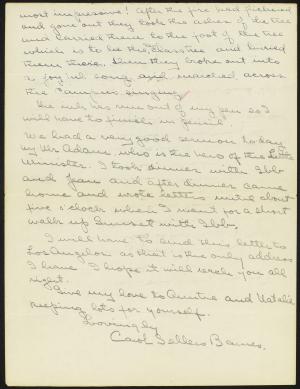 most impressive! After the fire had flickered
and gone out they took the ashes of the tree
and carried them to the foot of the tree
which is to be this class tree and buried
them there. Then they broke out into
a joyful song and marched across
the campus singing.
The ink has run out of my pen so I
will have to finish in pencil.
We had a very good sermon today
by Mr Adam who is the hero of the Little
Minister. I took dinner with Ibb
and Jean and after dinner came
home and wrote letters until about
five o'clock when I went for a short
walk up Sunset with Ibb.
I will have to send this letter to
Los Angeles as that is the only address
I have. I hope it will reach you all
right.
Give my love to Auntie and Natalie
keeping lots for yourself.
Lovingly
Carol Sellers Barnes.